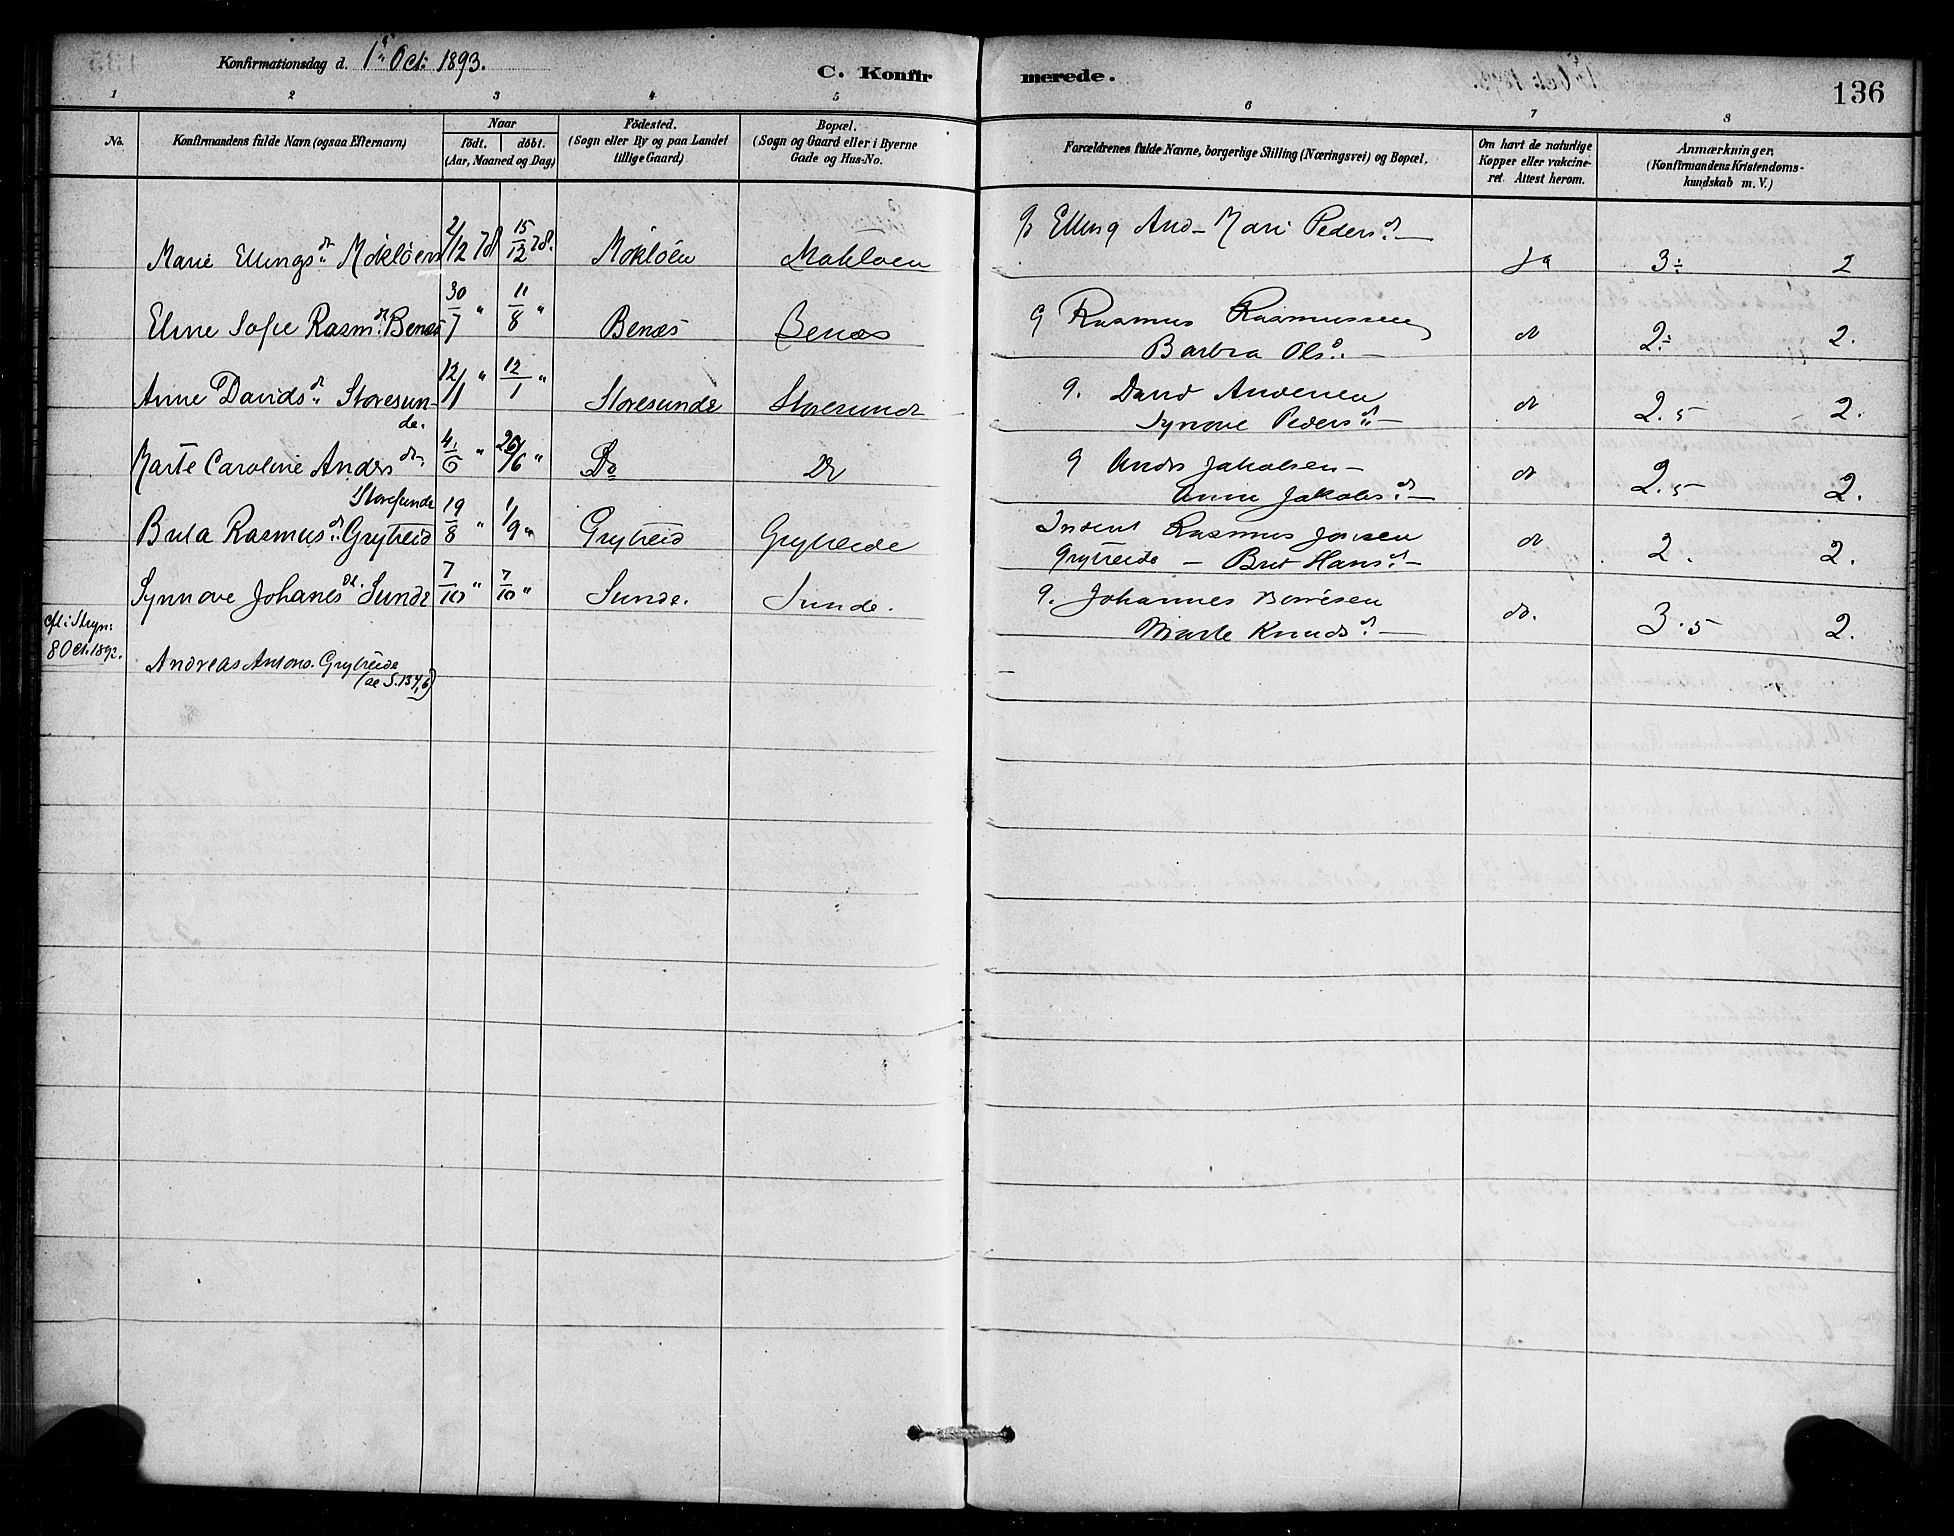 Konfirmationsdag d. 1ste Oct: 1893.
C. Konfirmerede.
136
1 2 3 4 5 6 7 8
No.
Konfirmandens fulde Navn (ogsaa Efternavn)
Naar
födt. döbt.
(Aar, Maaned og Dag)
Födested.
(Sogn eller By og paa Landet
tillige Gaard)
Bopæl.
(Sogn og Gaard eller i Byerne
Gade og Hus-No.
Forældrenes fulde Navne, borgerlige Stilling (Næringsvei) og Bopæl.
Om havt de naturlige
Kopper eller vakcine-
ret. Attest herom.
Anmærkninger.
(Konfirmandens Kristendoms-
kundskab m. V.)
Marie Ellingsdr Mökløen 2/12 78 15/12 78. Mökløen Mökløen G Elling And— Mari Pedersd. — Ja 3÷ 2
Eline Sofie Rasmd. Benæs 30/7 " 11/8 " Benæs Benæs G Rasmus Rasmussen do 2÷ 2.
Barbra Olsd. —
Anne Davidsdr Storesun- 12/1 " 12/1 " Storesunde Storesunde G. David Andersen do 2.5 2.
de. Synnove Pedersd. —
Marte Caroline Andersdr 4/6 " 26/6 " Do Do G Anders Jakobsen — do 2.5 2.
Storesunde Anne Jakobsd. —
Brita Rasmusd. Grytreid 19/8 " 1/9 " Grytreid Grytreide Inderst Rasmus Jonsen do 2. 2.
Grytreide — Brit Hansd. —
Synnove Johanesdt. Sunde 7/10 " 7/10 " Sunde. Sunde. G. Johannes do. 3.5 2.
Marte Knudsd. —
cfl: Stryn:
8 Oct. 1892.
Andreas Antons. Grytreide
(se S. 134,6)